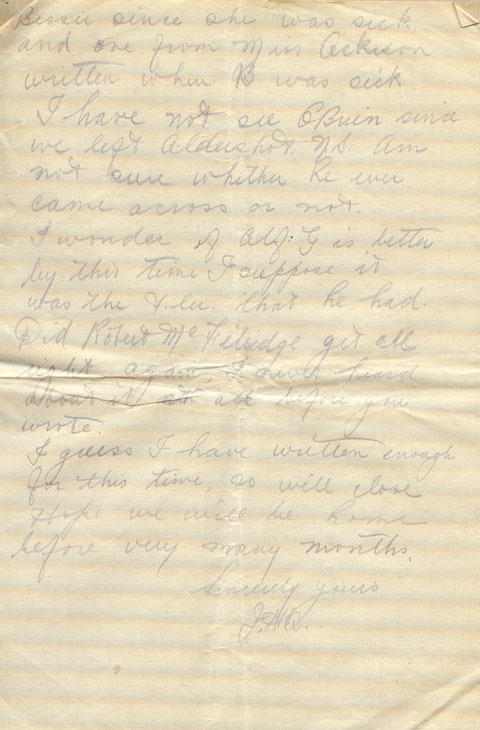 Bessie since she was sick
and one from Miss Ackison
written when B was sick.
I have not see OBrien since
we left Aldershot N.S. Am
not sure whither he ever
came across or not.
I wonder if Alf. G is better
by this time I suppose it
was the Flu. that he had.
Did Robert McFetridge get all
right again, I never heard
about it at all before you
wrote.
I guess I have written enough
for this time, so will close
Hope we will be home
before very many months.
Sincerely yours